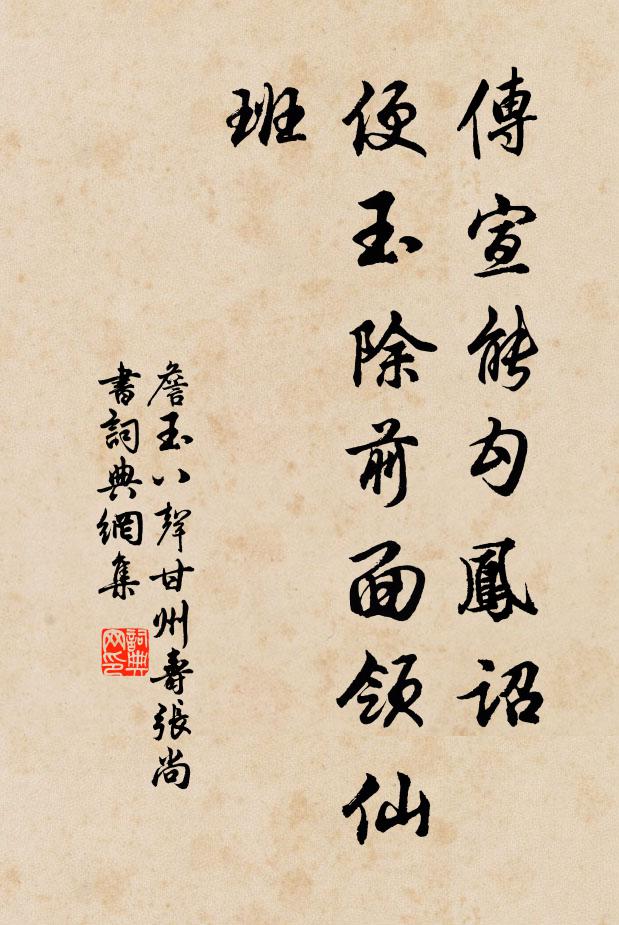 傳宣能勾鳳詔
便玉除前面領仙
班
詹玉八聲甘州壽張尚
書詞典網集
詞典网印